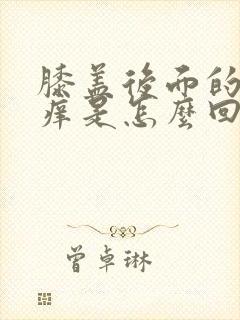 膝盖後而的
痒是怎麼回
曾卓琳